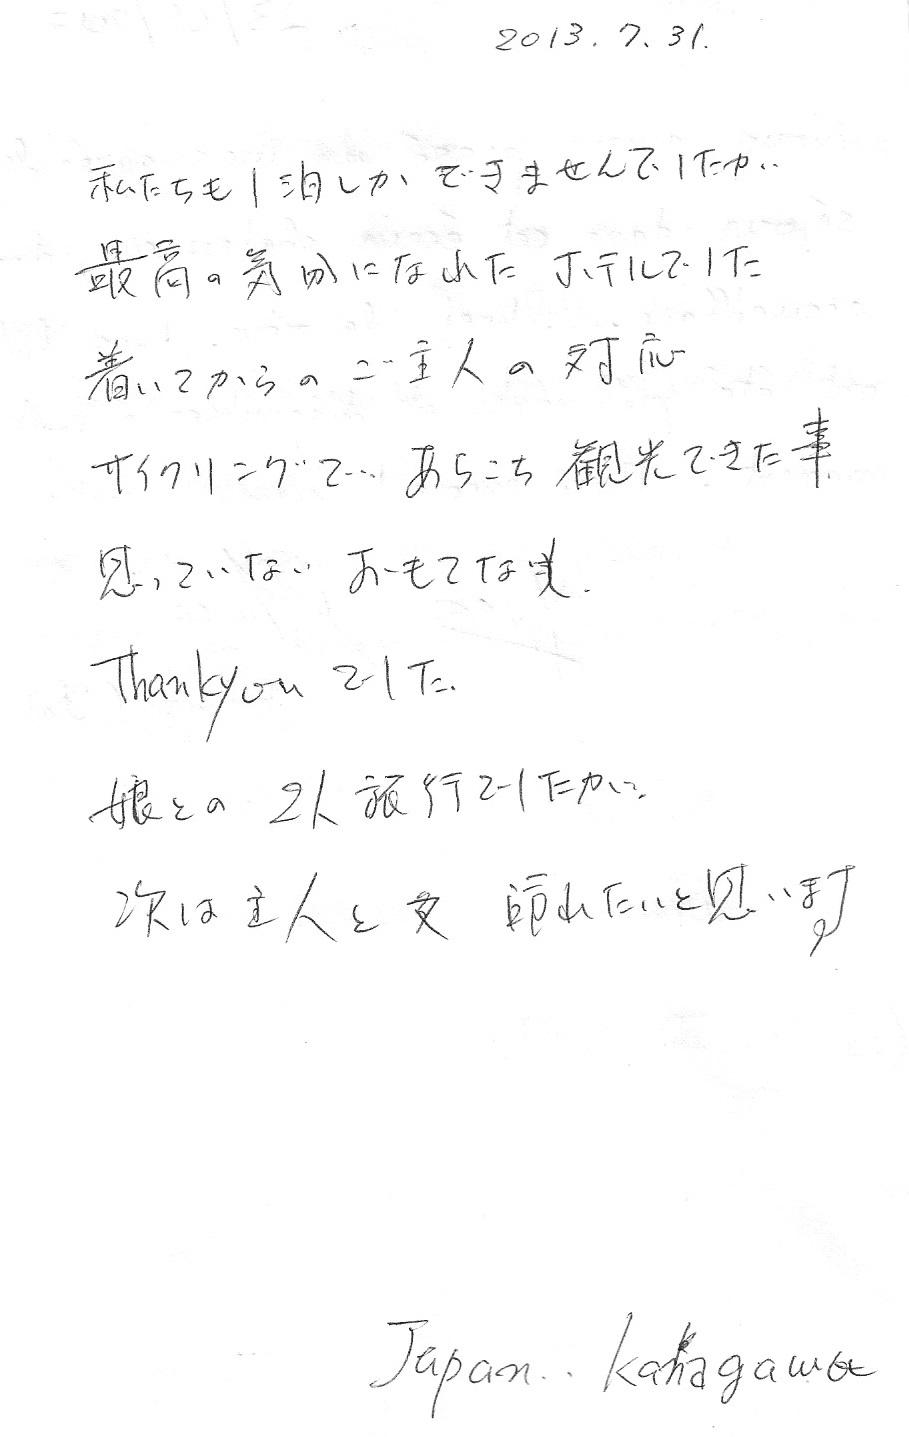 2013.7.31.
私たちも1泊しかできませんでしたが
最高の気分になれたホテルでした
着いてからのご主人の対応
サイクリングで… あちこち観光できた事
思っていない おもてなし
Thankyou でした.
娘との 2人旅行でしたが、
次は主人と又 訪れたいと思います
Japan..